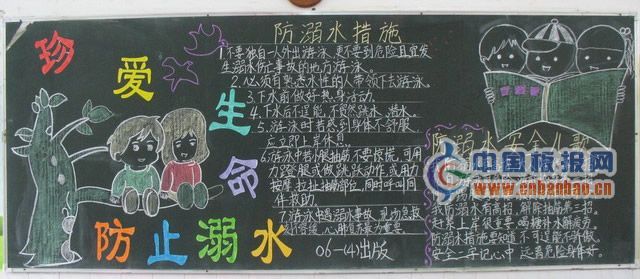 珍爱生命
防止溺水
防溺水措施
1.不要独自一人外出游泳,更不要到危险且宜发
生溺水伤亡事故的地方游泳。
2.必须有熟悉水性的人带领下去游泳。
3.下水前做好热身活动。
4.下水后不逞能,不贸然跳水、潜水。
5.游泳时若感到身体不舒服,
应立即上岸休息。
6.游泳时若小腿抽筋不要惊慌,可用
力蹬腿或做跳跃动作,或用力
按摩、拉扯抽筋部位,同时呼叫同
伴救助。
7.游泳中遇溺水事故,现场急救
06-(4)出版
防溺水安全儿歌
中国板报网
www.cnbanbao.cn
我防溺水有高招,解除抽筋第一招。
赶紧上岸很重要,喝糖补水解疲劳。
防溺水措施要知道,不可逞能不骄傲。
安全一字记心中,远离危险身体好。